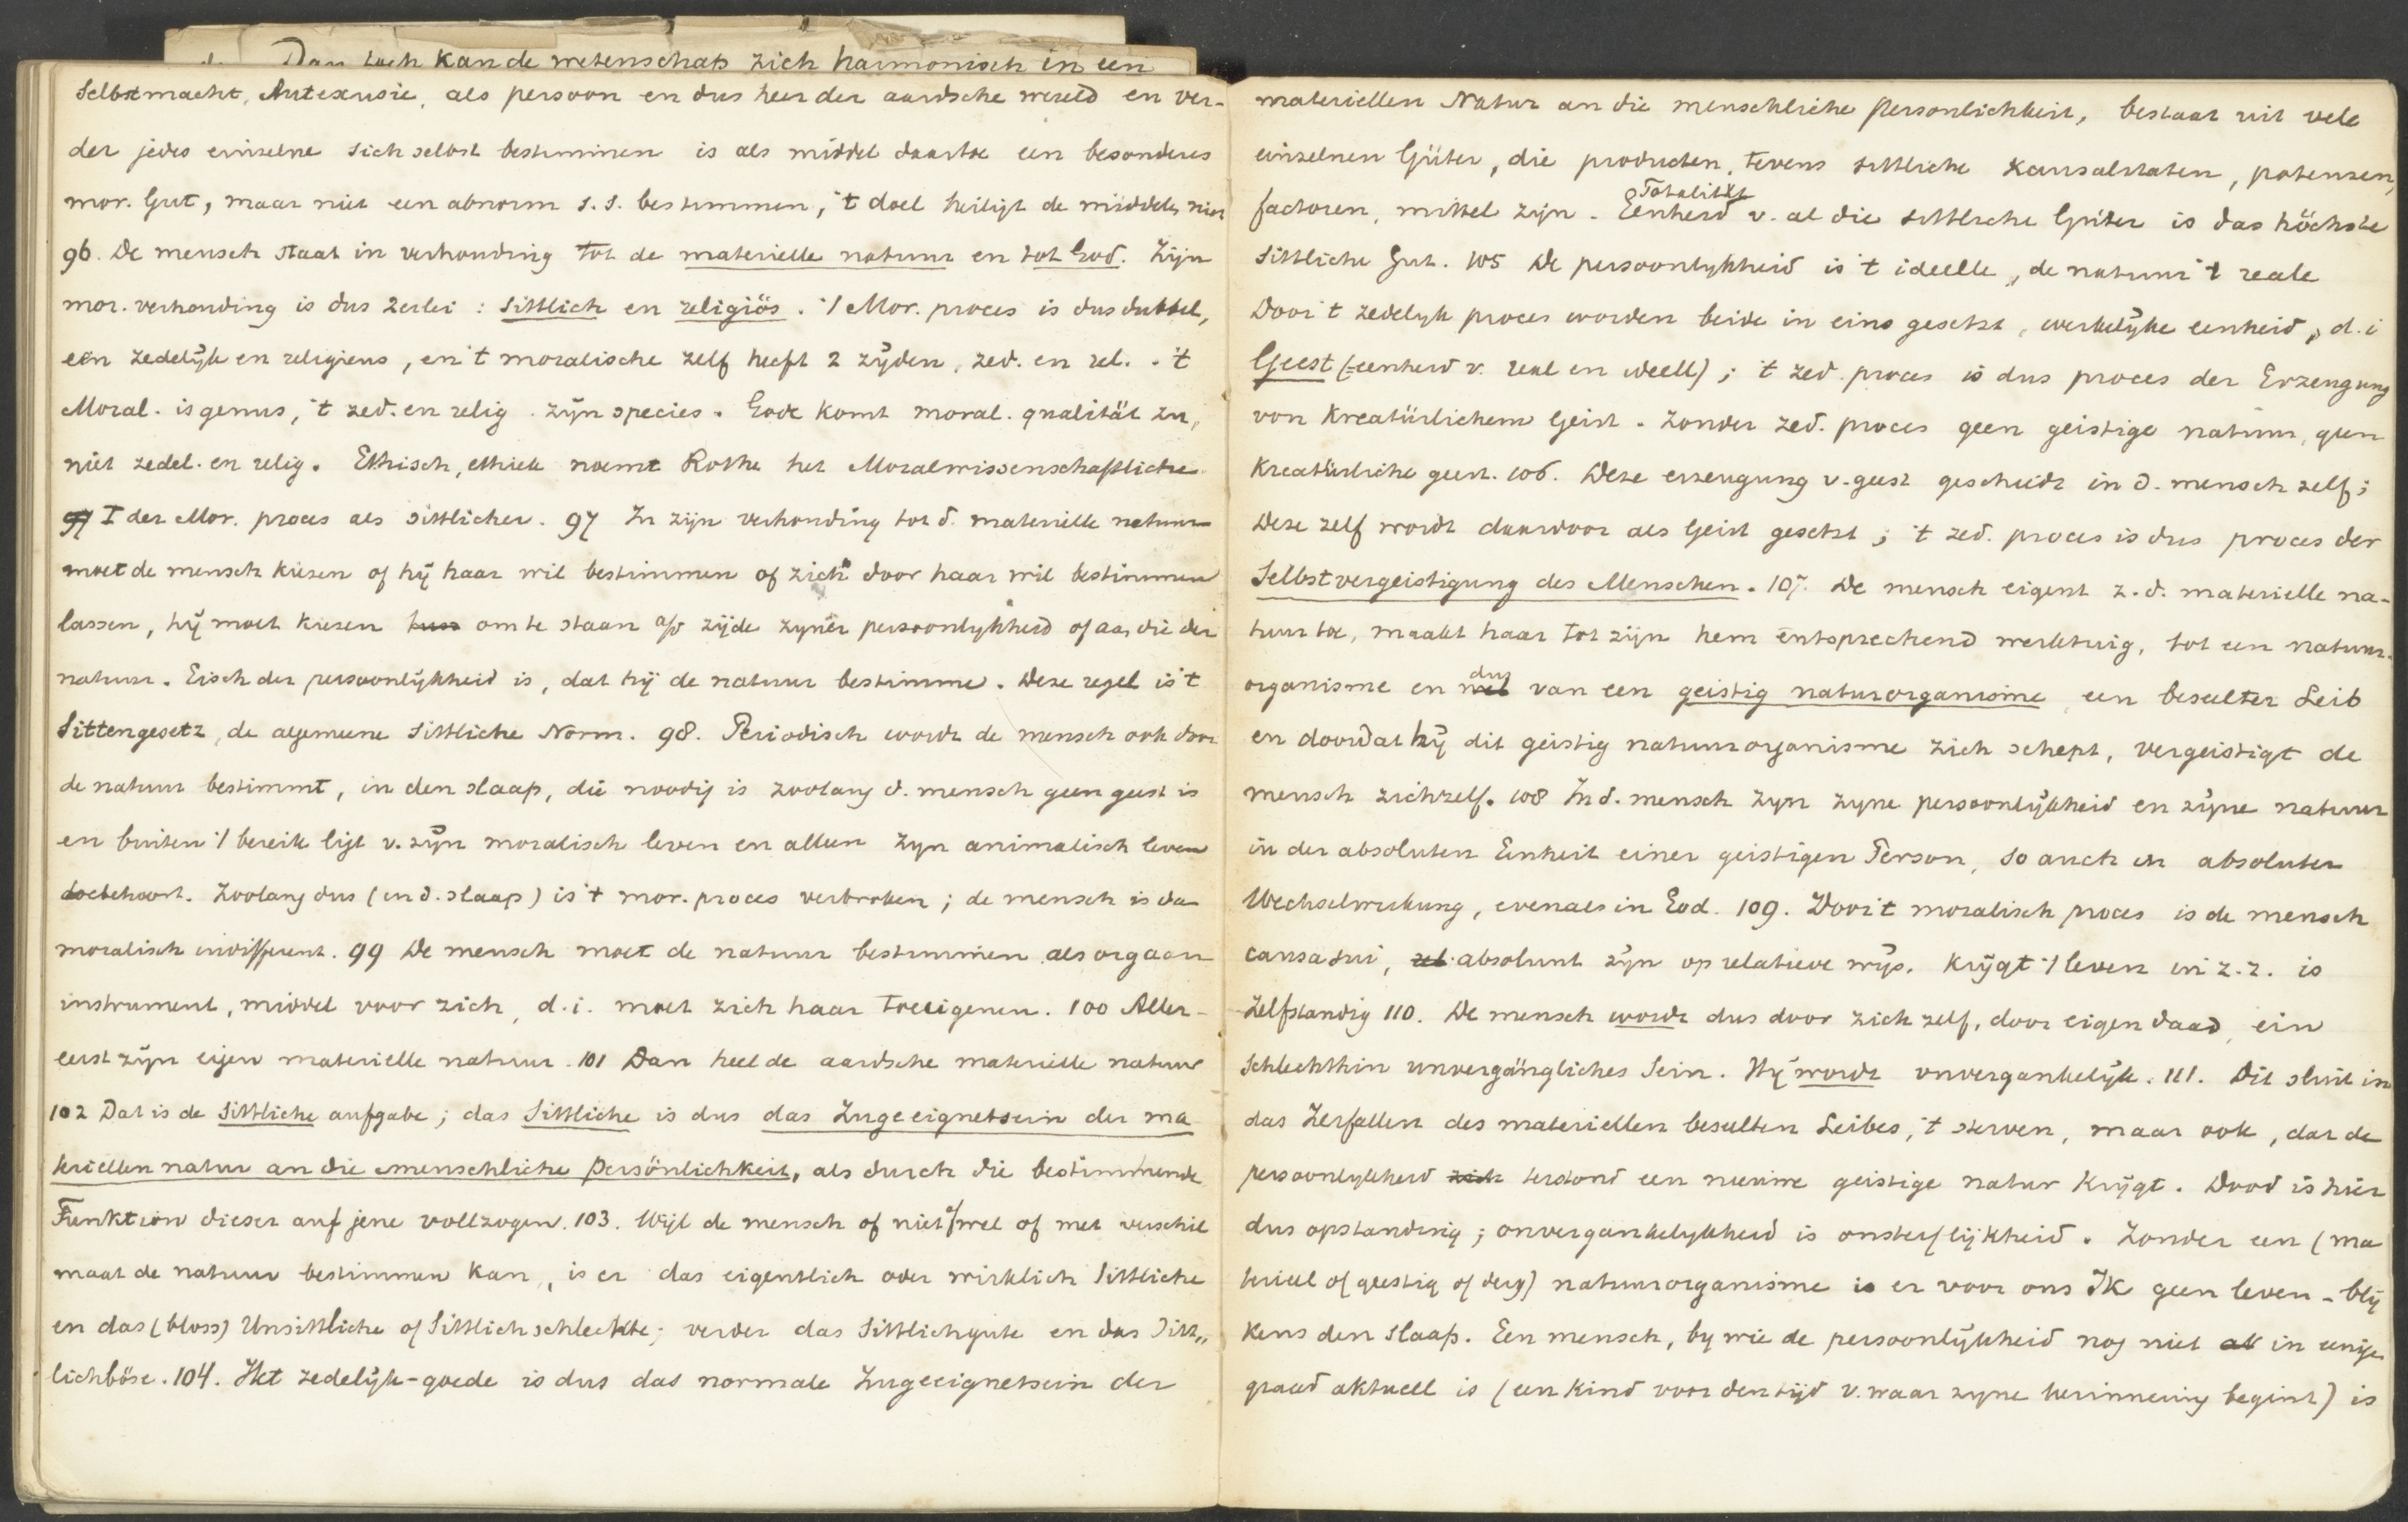 Dan toch kan de wetenschap zich harmonisch in een
Selbstmacht, Autexusie, als persoon en dus heer der aardsche wereld en ver-
der jedes einzelne sich selbst bestimmen is als middel daartoe een besonderes
mor. Gut, maar niet een abnorm s.s. bestimmen, 't doel heiligt de middelen niet
96. De mensch staat in verhouding tot de materielle natuur en tot God. Zijn
mor. verhouding is dus 2erlei: sittlich en religiös. 't Mor. proces is dus dubbel,
een zedelijk en religieus, en 't moralische zelf heeft 2 zijden, zed. en rel. - 't
Moral. is genus, 't zed. en relig. zijn species. Gode komt moral. qualität zu,
niet zedel. en relig. Ethisch, ethiek noemt Rothe het Moralwissenschaftliche
97 I der Mor. proces als sittlicher. 97 In zijn verhouding tot d. materielle natuur
moet de mensch kiezen of hij haar wil bestimmen of zich door haar wil bestimmen
lassen, hij moet kiezen om te staan a/d zijde zyner persoonlykheid of aan die der
natuur. Eisch der persoonlijkheid is, dat hij de natuur bestimme. Deze regel is 't
Sittengesetz, de algemeene sittliche Norm. 98. Periodisch wordt de mensch ook door
de natuur bestimmt, in den slaap, die noodig is zoolang d. mensch geen geest is
en buiten 't bereik ligt v. zijn moralisch leven en alleen zyn animalisch leven
toebehoort. Zoolang dus (in d. slaap) is 't mor. proces verbroken; de mensch is dan
moralisch indifferent. 99 De mensch moet de natuur bestimmen als orgaan
instrument, middel voor zich, d.i. moet zich haar toeeigenen. 100 Aller-
eerst zijn eigen materielle natuur. 101 Dan heel de aardsche materielle natuur
102 Dat is de sittliche aufgabe; das Sittliche is dus das Zugeeignetsein der ma
teriellen natur an die menschliche Persönlichkeit, als durch die bestimmende
Funktion dieser auf jene vollzogen. 103. Wijl de mensch of niet of wel of met verschil
maat de natuur bestimmen kan, is er das eigentlich oder wirklich Sittliche
en das (bloss) Unsittliche of Sittlich schlechte; verder das Sittlichgute en das Sitt„
lichböse. 104. Het zedelijk-goede is dus das normale Zugeeignetsein der
materiellen Natur an die menschliche Personlichkeit, bestaat uit vele
einzelnen Güter, die producten, tevens sittliche Kausalitaten, potenzen,
factoren, mittel zijn. Eenheid Totalität v. al die sittliche Güter is das höchste
Sittliche Gut. 105 De persoonlykheid is 't ideelle, de natuur 't reale
Door 't zedelyk proces worden beide in eins gesetzt, werkelijke eenheid, d.i
Geest (=eenheid v. real en ideell); 't zed. proces is dus proces der Erzeugung
von Kreatürlichem Geist. Zonder zed. proces geen geistige natuur, geen
Kreatürliche geest. 106. Deze erzeugung v. geest geschiedt in d. mensch zelf;
Deze zelf wordt daardoor als Geist gesetzt; 't zed. proces is dus proces der
Selbstvergeistigung des Menschen. 107. De mensch eigent z. d. materielle na-
tuur toe, maakt haar tot zijn hem entsprechend werktuig, tot een natuur-
organisme en wel dus van een geistig naturorganisme een beseelter Leib
en doordat hij dit geistig natuurorganisme zich schept, vergeistigt de
mensch zichzelf. 108 In d. mensch zyn zyne persoonlijkheid en zijne natuur
in der absoluten Einheit einer geistigen Person, so auch in absoluter
Wechselwirkung, evenals in God. 109. Door 't moralisch proces is de mensch
causa sui, absoluut zijn op relatieve wijs. Krijgt 't leven in z.z. is
Zelfstandig 110. De mensch wordt dus door zich zelf, door eigen daad, ein
Schlechthin unvergängliches Sein. Hij wordt onvergankelijk. 111. Dit sluit in
das Zerfallen des materiellen beseelten Leibes, 't sterven, maar ook, dat de
persoonlykheid zich terstond een nieuwe geistige natur krijgt. Dood is hier
dus opstanding; onvergankelykheid is onsterflijkheid. Zonder een (ma
terieel of geestig of derg) natuurorganisme is er voor ons Ik geen leven - blij
kens den slaap. Een mensch, by wie de persoonlijkheid nog niet in eenige
graad aktuell is (een kind voor den tijd v. waar zyne herinnering begint) is